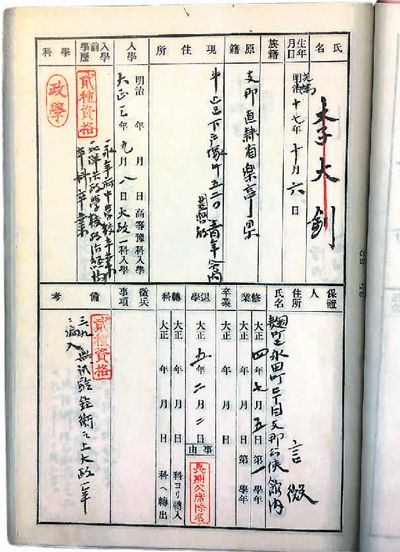 氏名 李大釗
生年月日 光緒 明治 十七年十月六日
族籍
原籍 支那直隷省楽亭県
現住所 牛込区下戸塚町五二〇 青年会内
入学 明治 年 月 日 高等豫科入学
大正三年九月八日 大政一科入学
入学前学歴 永平府中学校卒業
北洋法政学校政治経済
本科卒業
貳種資格
学科 政学
保證人 氏名 言微
住所 麹町区永田町二丁目支那公使館内
修業 大正四年七月五日第一学年
大正 年 月 日第 学年
卒業 大正 年 月 日
退学 大正五年二月二日 事由 長期欠席除名
轉科 大正 年 月 日 科ヨリ轉入
大正 年 月 日 科ヘ轉出
徴兵事項
備考 貳種資格
無試験 銓衡之上大政一年
入